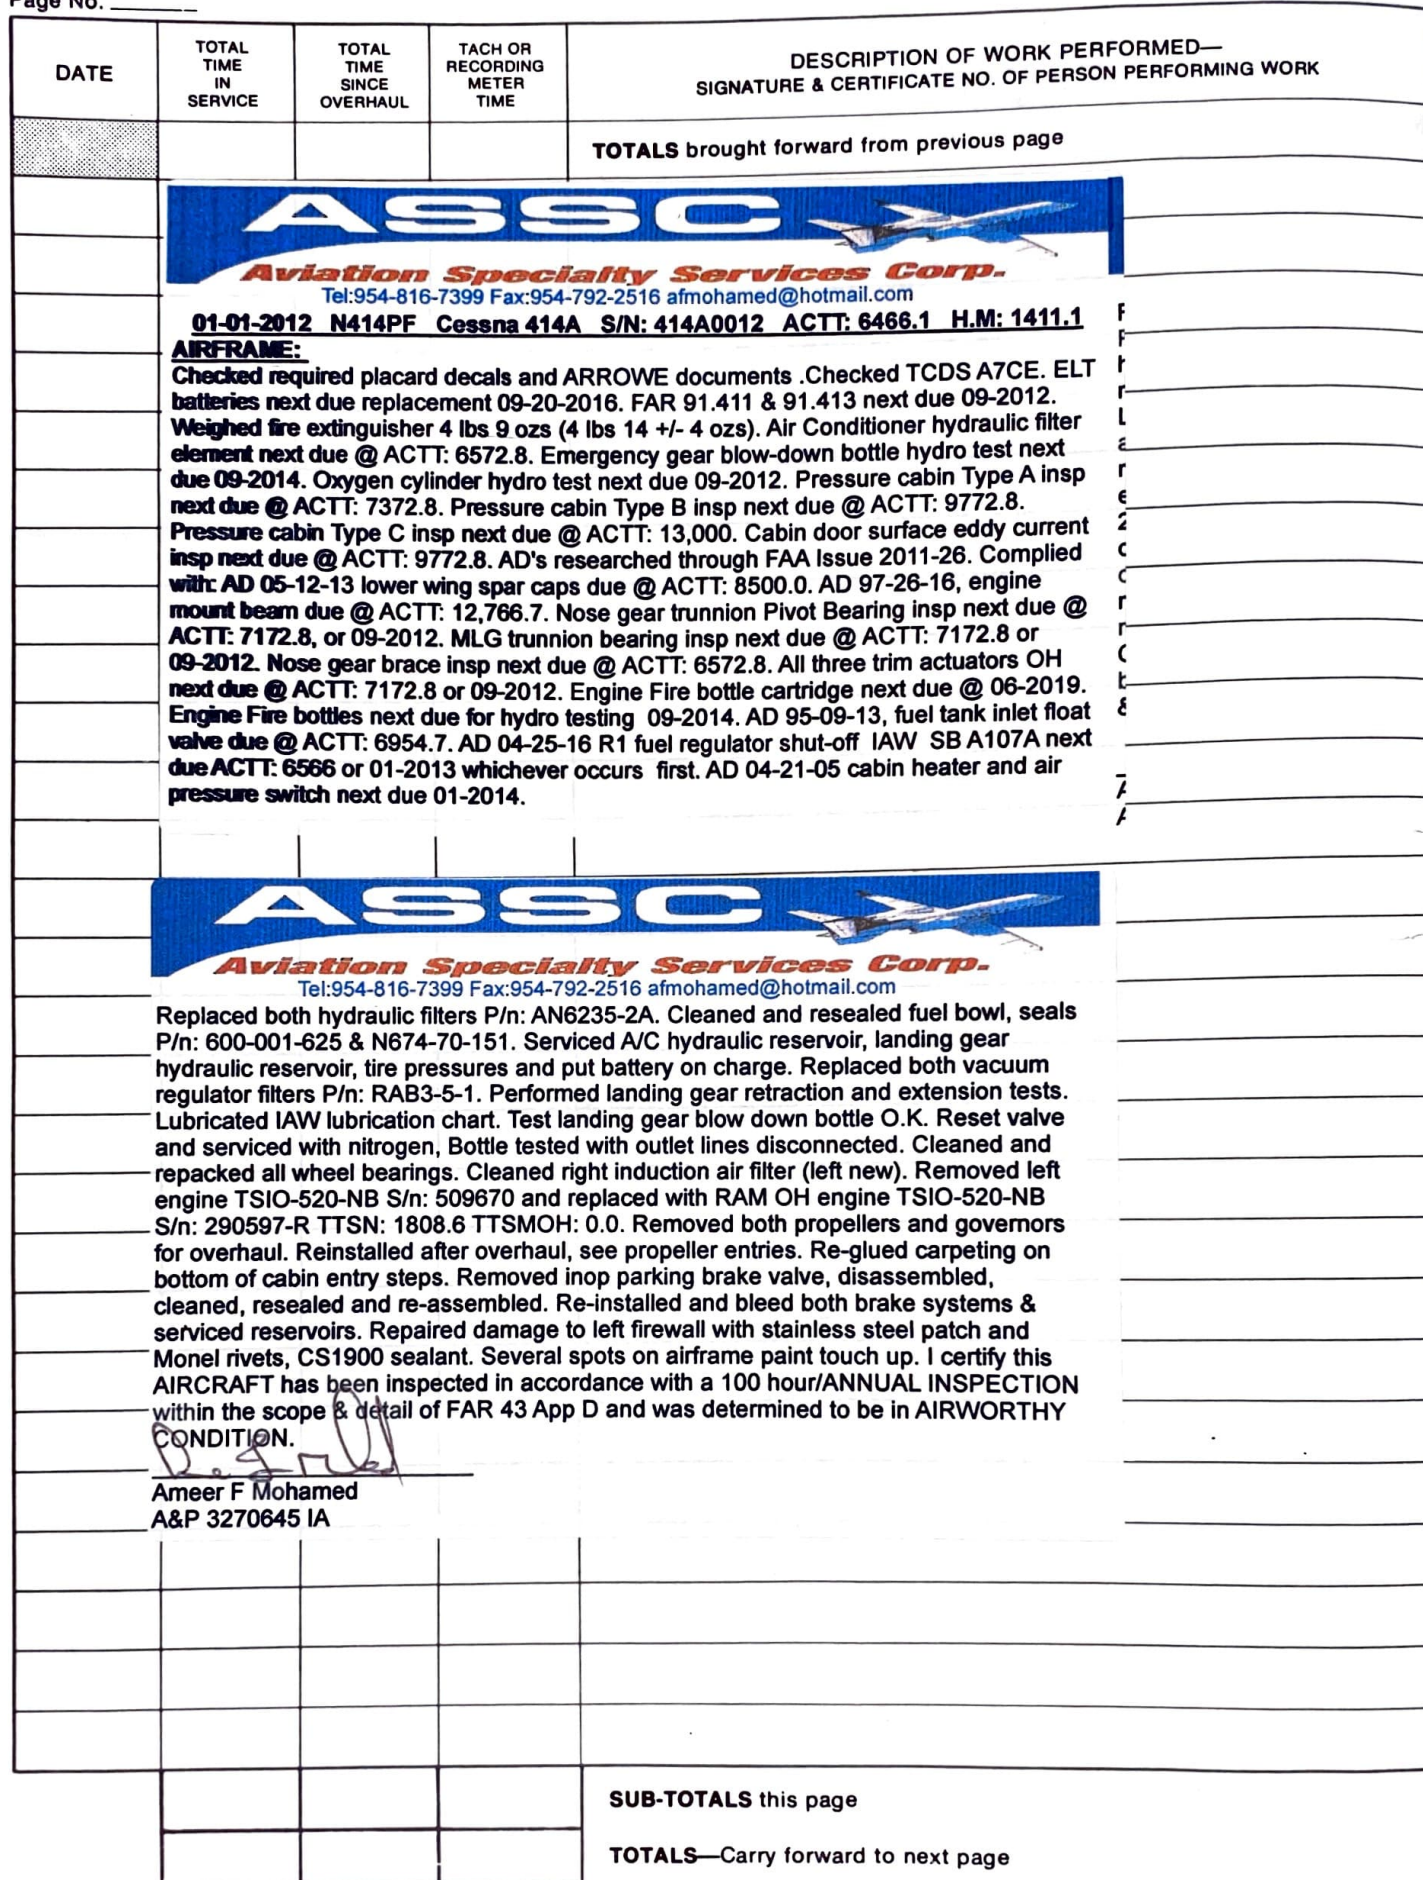 Page No.
DATE
TOTAL
TIME
IN
SERVICE
TOTAL
TIME
SINCE
OVERHAUL
TACH OR
RECORDING
METER
TIME
DESCRIPTION OF WORK PERFORMED—
SIGNATURE & CERTIFICATE NO. OF PERSON PERFORMING WORK
TOTALS brought forward from previous page
ASSC
Aviation Specialty Services Corp.
Tel:954-816-7399 Fax:954-792-2516 afmohamed@hotmail.com
01-01-2012 N414PF Cessna 414A S/N: 414A0012 ACTT: 6466.1 H.M: 1411.1
AIRFRAME:
Checked required placard decals and ARROWE documents .Checked TCDS A7CE. ELT
batteries next due replacement 09-20-2016. FAR 91.411 & 91.413 next due 09-2012.
Weighed fire extinguisher 4 lbs 9 ozs (4 lbs 14 +/- 4 ozs). Air Conditioner hydraulic filter
element next due @ ACTT: 6572.8. Emergency gear blow-down bottle hydro test next
due 09-2014. Oxygen cylinder hydro test next due 09-2012. Pressure cabin Type A insp
next due @ ACTT: 7372.8. Pressure cabin Type B insp next due @ ACTT: 9772.8.
Pressure cabin Type C insp next due @ ACTT: 13,000. Cabin door surface eddy current
insp next due @ ACTT: 9772.8. AD's researched through FAA Issue 2011-26. Complied
with: AD 05-12-13 lower wing spar caps due @ ACTT: 8500.0. AD 97-26-16, engine
mount beam due @ ACTT: 12,766.7. Nose gear trunnion Pivot Bearing insp next due @
ACTT: 7172.8, or 09-2012. MLG trunnion bearing insp next due @ ACTT: 7172.8 or
09-2012. Nose gear brace insp next due @ ACTT: 6572.8. All three trim actuators OH
next due @ ACTT: 7172.8 or 09-2012. Engine Fire bottle cartridge next due @ 06-2019.
Engine Fire bottles next due for hydro testing 09-2014. AD 95-09-13, fuel tank inlet float
valve due @ ACTT: 6954.7. AD 04-25-16 R1 fuel regulator shut-off IAW SB A107A next
due ACTT: 6566 or 01-2013 whichever occurs first. AD 04-21-05 cabin heater and air
pressure switch next due 01-2014.
ASSC
Aviation Specialty Services Corp.
Tel:954-816-7399 Fax:954-792-2516 afmohamed@hotmail.com
Replaced both hydraulic filters P/n: AN6235-2A. Cleaned and resealed fuel bowl, seals
P/n: 600-001-625 & N674-70-151. Serviced A/C hydraulic reservoir, landing gear
hydraulic reservoir, tire pressures and put battery on charge. Replaced both vacuum
regulator filters P/n: RAB3-5-1. Performed landing gear retraction and extension tests.
Lubricated IAW lubrication chart. Test landing gear blow down bottle O.K. Reset valve
and serviced with nitrogen, Bottle tested with outlet lines disconnected. Cleaned and
repacked all wheel bearings. Cleaned right induction air filter (left new). Removed left
engine TSIO-520-NB S/n: 509670 and replaced with RAM OH engine TSIO-520-NB
S/n: 290597-R TTSN: 1808.6 TTSMOH: 0.0. Removed both propellers and governors
for overhaul. Reinstalled after overhaul, see propeller entries. Re-glued carpeting on
bottom of cabin entry steps. Removed inop parking brake valve, disassembled,
cleaned, resealed and re-assembled. Re-installed and bleed both brake systems &
serviced reservoirs. Repaired damage to left firewall with stainless steel patch and
Monel rivets, CS1900 sealant. Several spots on airframe paint touch up. I certify this
AIRCRAFT has been inspected in accordance with a 100 hour/ANNUAL INSPECTION
within the scope & detail of FAR 43 App D and was determined to be in AIRWORTHY
CONDITION.
Ameer F Mohamed
A&P 3270645 IA
SUB-TOTALS this page
TOTALS—Carry forward to next page